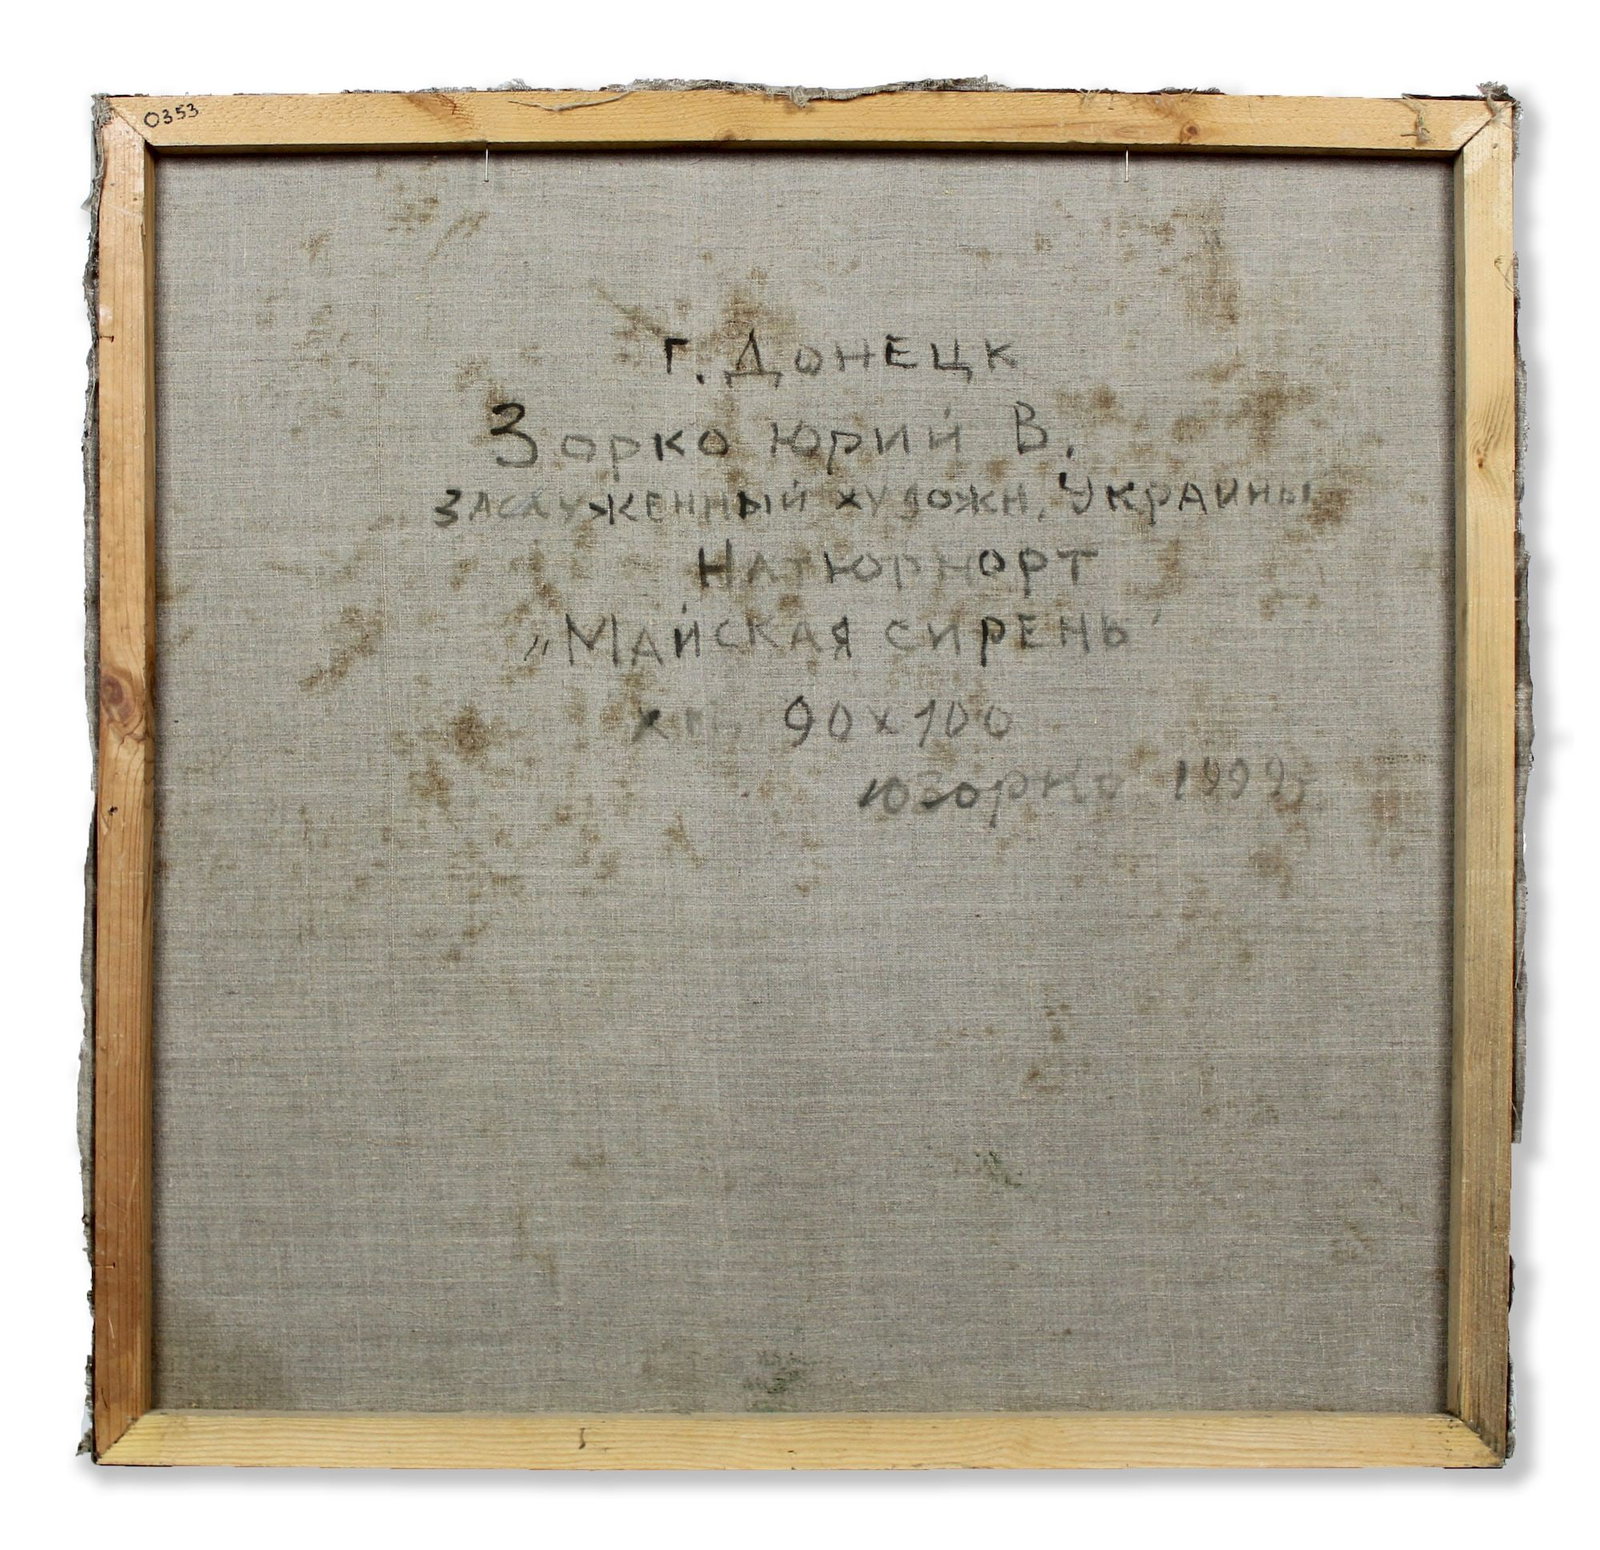 0353
г. Донецк
Зорко Юрий В.
заслуженный художн. Украины
Натюрморт
„Майская сирень"
90х100
ЮЗорко 1999г